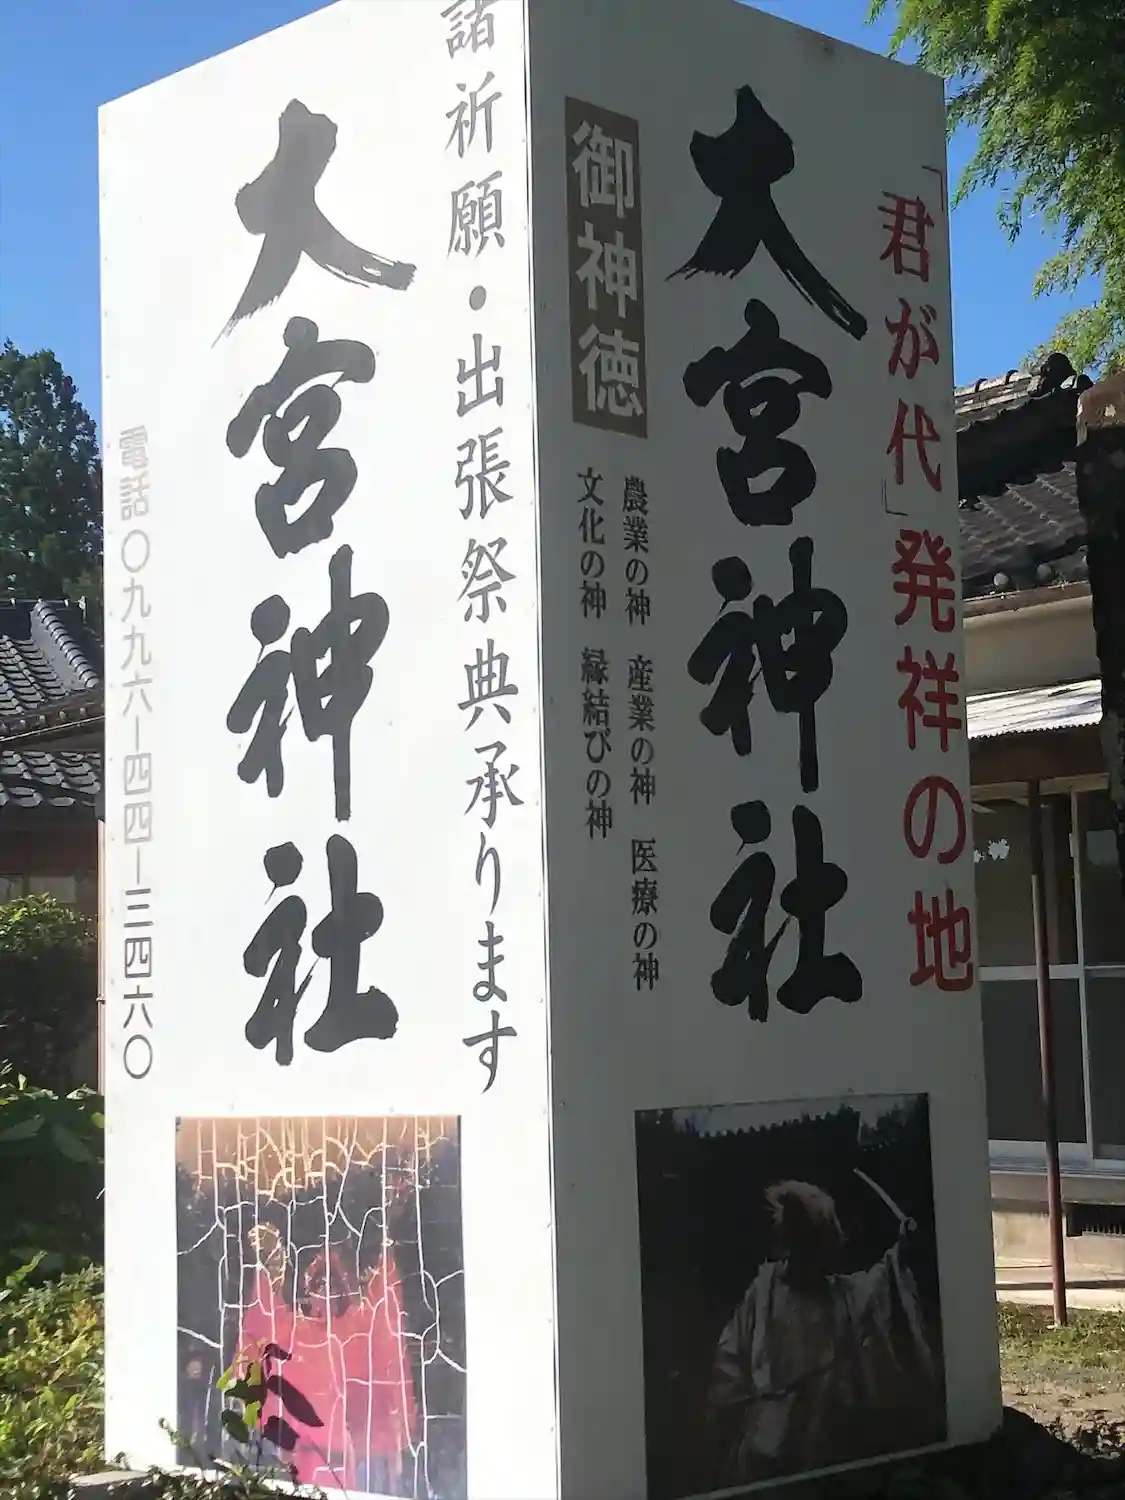 「君が代」発祥の地
大宮神社
御神徳
農業の神 産業の神 医療の神
文化の神 縁結びの神
諸祈願・出張祭典承ります
大宮神社
電話〇九九六―四四―三四六〇